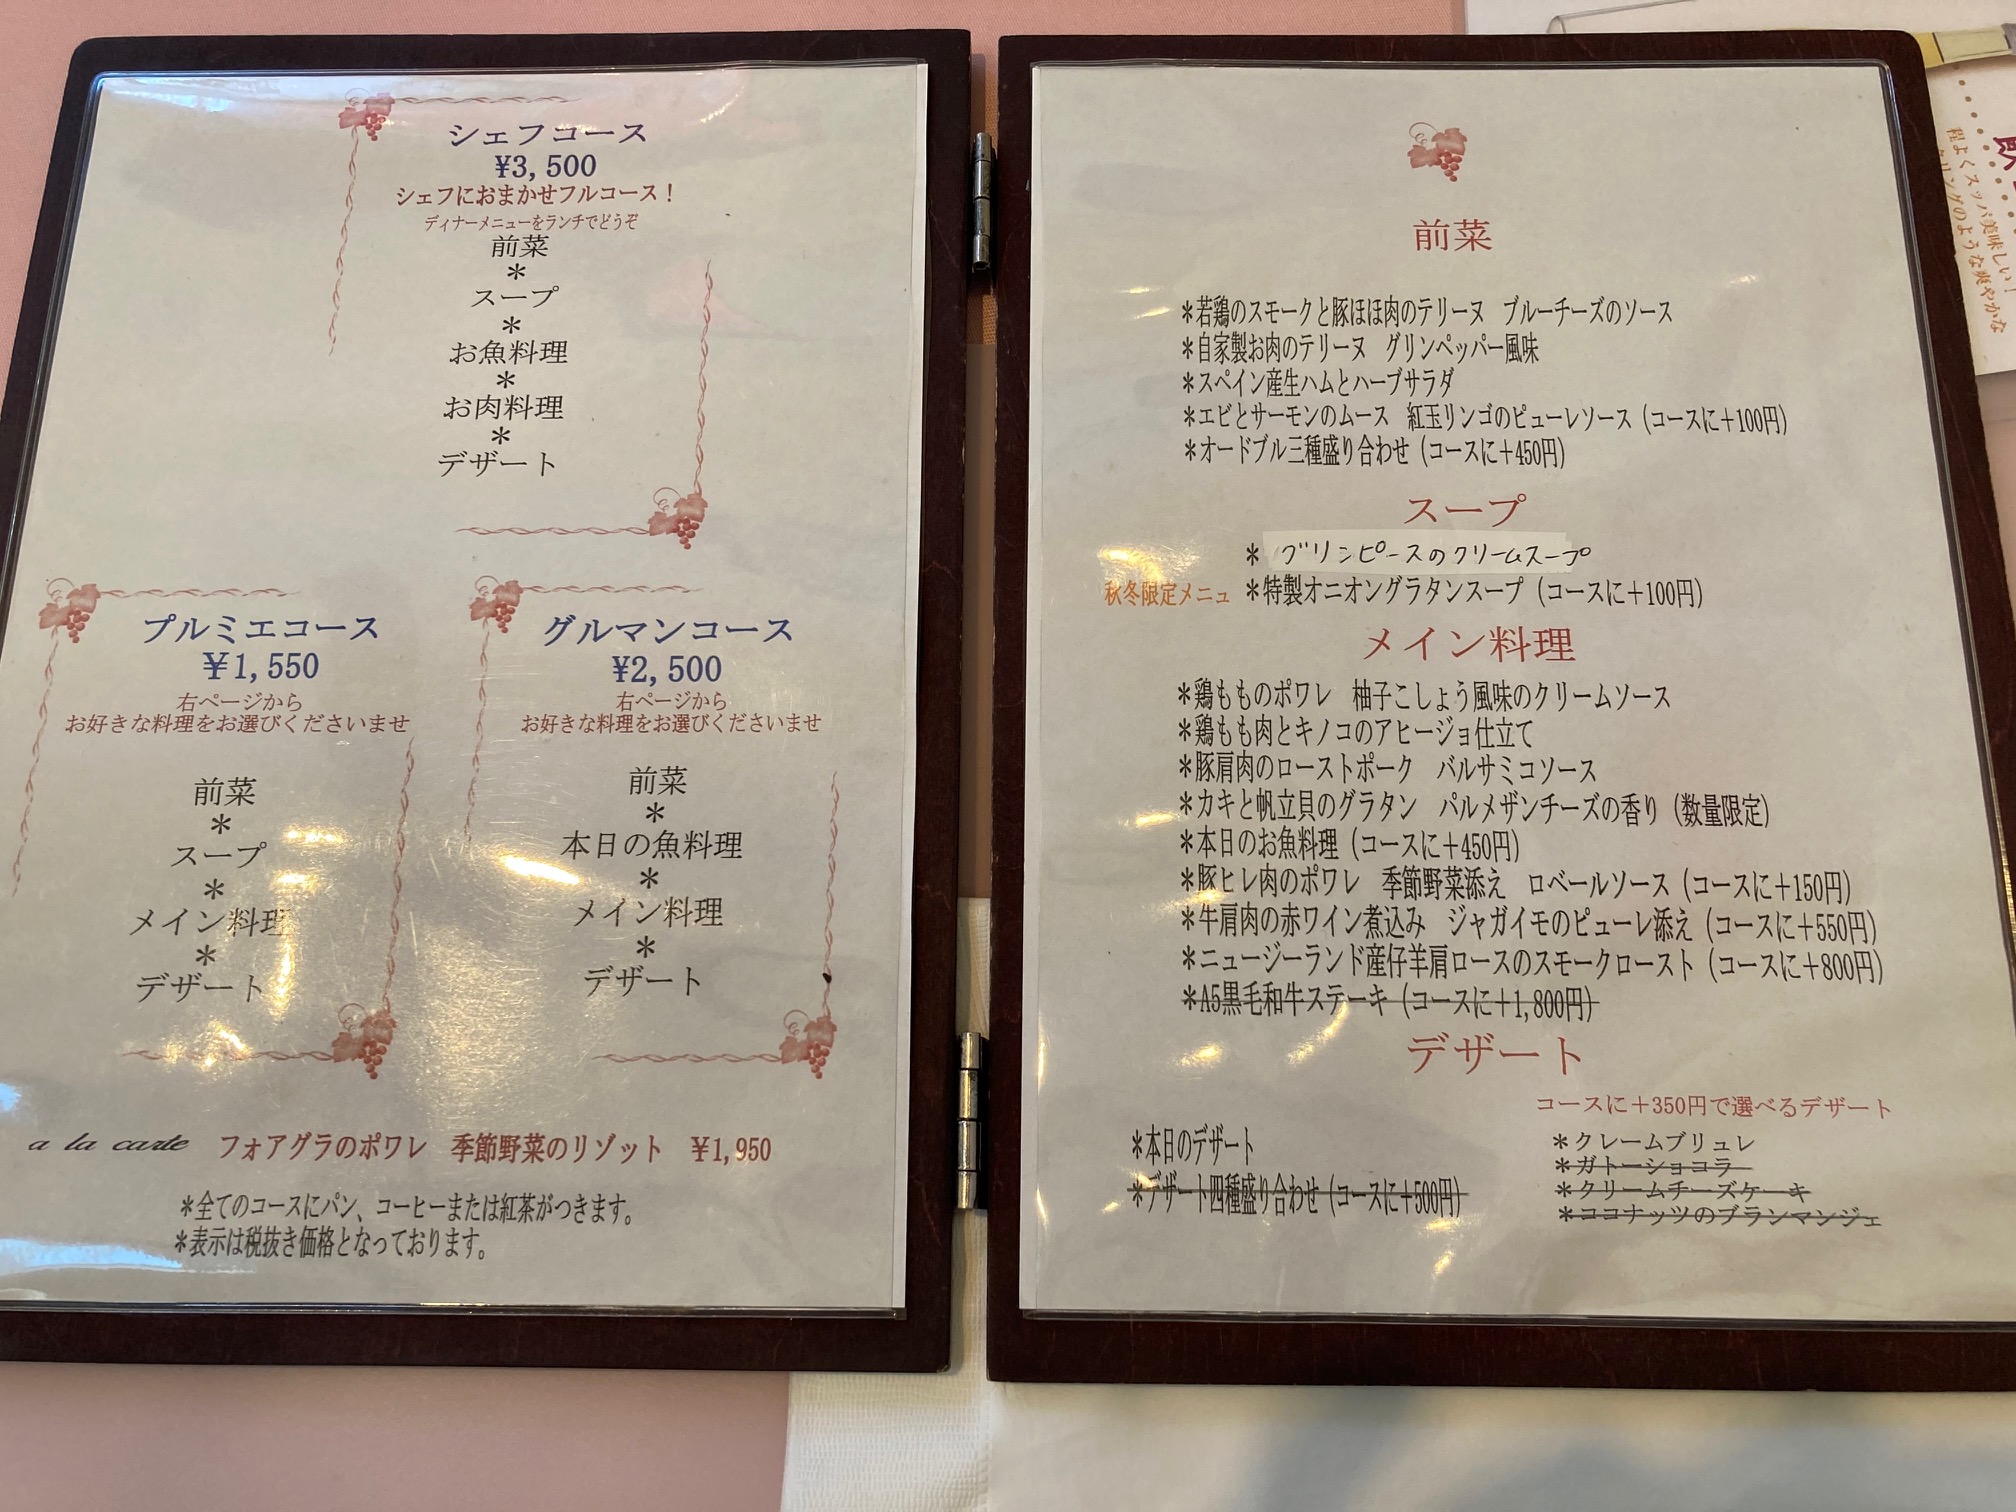 シェフコース
¥3,500
シェフにおまかせフルコース！
ディナーメニューをランチでどうぞ
前菜
＊
スープ
＊
お魚料理
＊
お肉料理
＊
デザート
プルミエコース
￥1,550
右ページから
お好きな料理をお選びくださいませ
前菜
＊
スープ
＊
メイン料理
＊
デザート
グルマンコース
¥2,500
右ページから
お好きな料理をお選びくださいませ
前菜
＊
本日の魚料理
＊
メイン料理
＊
デザート
a la carte フォアグラのポワレ　季節野菜のリゾット　￥1,950
＊全てのコースにパン、コーヒーまたは紅茶がつきます。
＊表示は税抜き価格となっております。
前菜
＊若鶏のスモークと豚ほほ肉のテリーヌ　ブルーチーズのソース
＊自家製お肉のテリーヌ　グリンペッパー風味
＊スペイン産生ハムとハーブサラダ
＊エビとサーモンのムース　紅玉リンゴのピューレソース（コースに＋100円）
＊オードブル三種盛り合わせ（コースに＋450円）
スープ
＊グリンピースのクリームスープ
秋冬限定メニュ ＊特製オニオングラタンスープ（コースに＋100円）
メイン料理
＊鶏もものポワレ　柚子こしょう風味のクリームソース
＊鶏もも肉とキノコのアヒージョ仕立て
＊豚肩肉のローストポーク　バルサミコソース
＊カキと帆立貝のグラタン　パルメザンチーズの香り（数量限定）
＊本日のお魚料理（コースに＋450円）
＊豚ヒレ肉のポワレ　季節野菜添え　ロベールソース（コースに＋150円）
＊牛肩肉の赤ワイン煮込み　ジャガイモのピューレ添え（コースに＋550円）
＊ニュージーランド産仔羊肩ロースのスモークロースト（コースに＋800円）
＊A5黒毛和牛ステーキ（コースに＋1,800円）
デザート
＊本日のデザート
＊デザート四種盛り合わせ（コースに＋500円）
コースに＋350円で選べるデザート
＊クレームブリュレ
＊ガトーショコラ
＊クリームチーズケーキ
＊ココナッツのブランマンジェ
程よくスッパ美味しい！
のような爽やかな